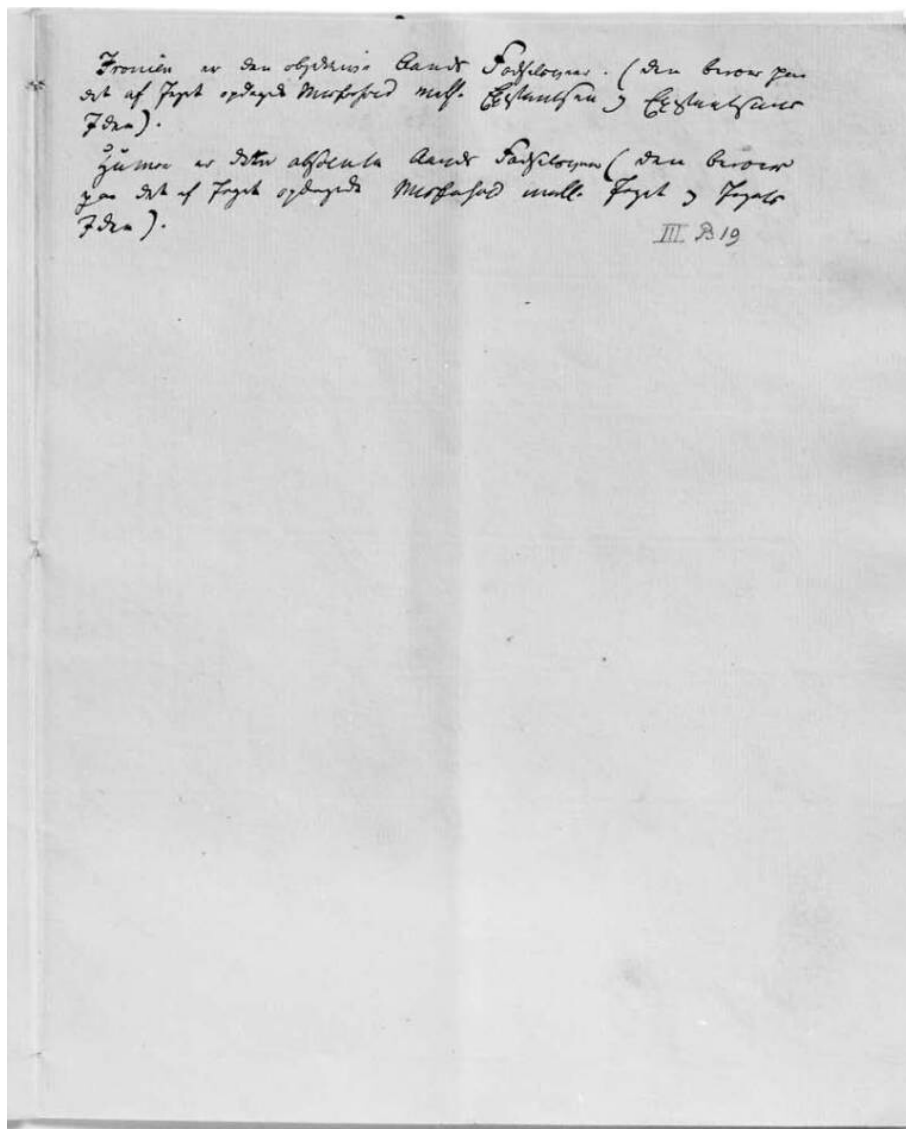 Ironien er den objektive Aands Fødselsveer. (den beroer paa
det af Jeget opdagede Misforhold mell. Existentsen og Existentsens
Idee).
Humor er den absolute Aands Fødselsveer (den beroer
paa det af Jeget opdagede Misforhold mell. Jeget og Jegets
Idee).
III B 19